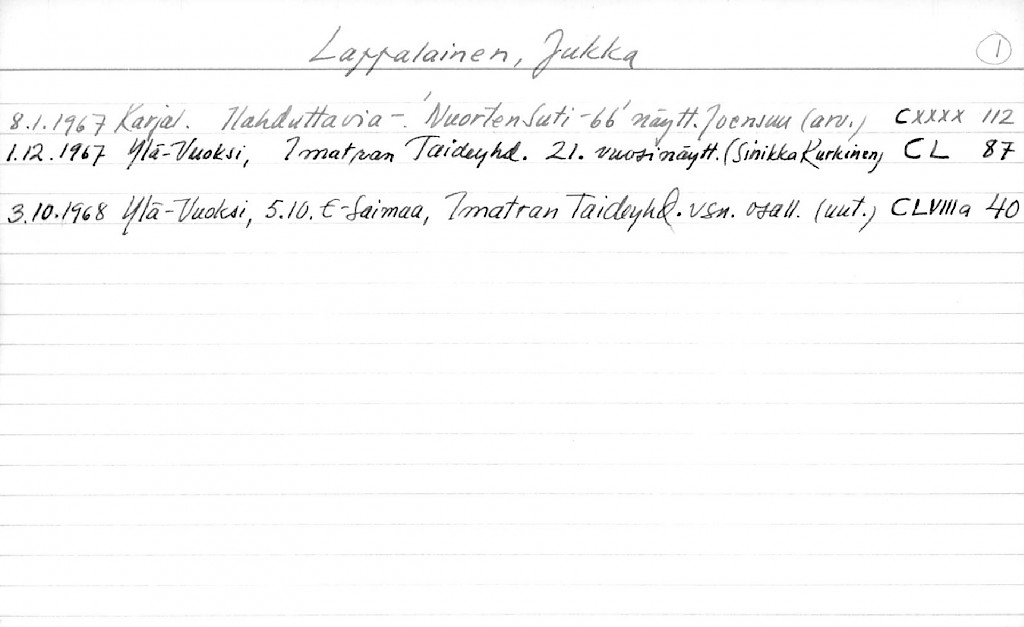 Lappalainen, Jukka 1
8.1.1967 Karjal. Hahduttavia -. 'Nuorten Suti -66' näytt. Joensuu (arv.) CXXXX 112
1.12.1967 Ylä-Vuoksi, Imatran Taideyhd. 21. vuosinäytt. (Sinikka Kurkinen) CL 87
3.10.1968 Ylä-Vuoksi, 5.10. E-Saimaa, Imatran Taideyhd. vsn. osall. (uut.) CLVIIIa 40